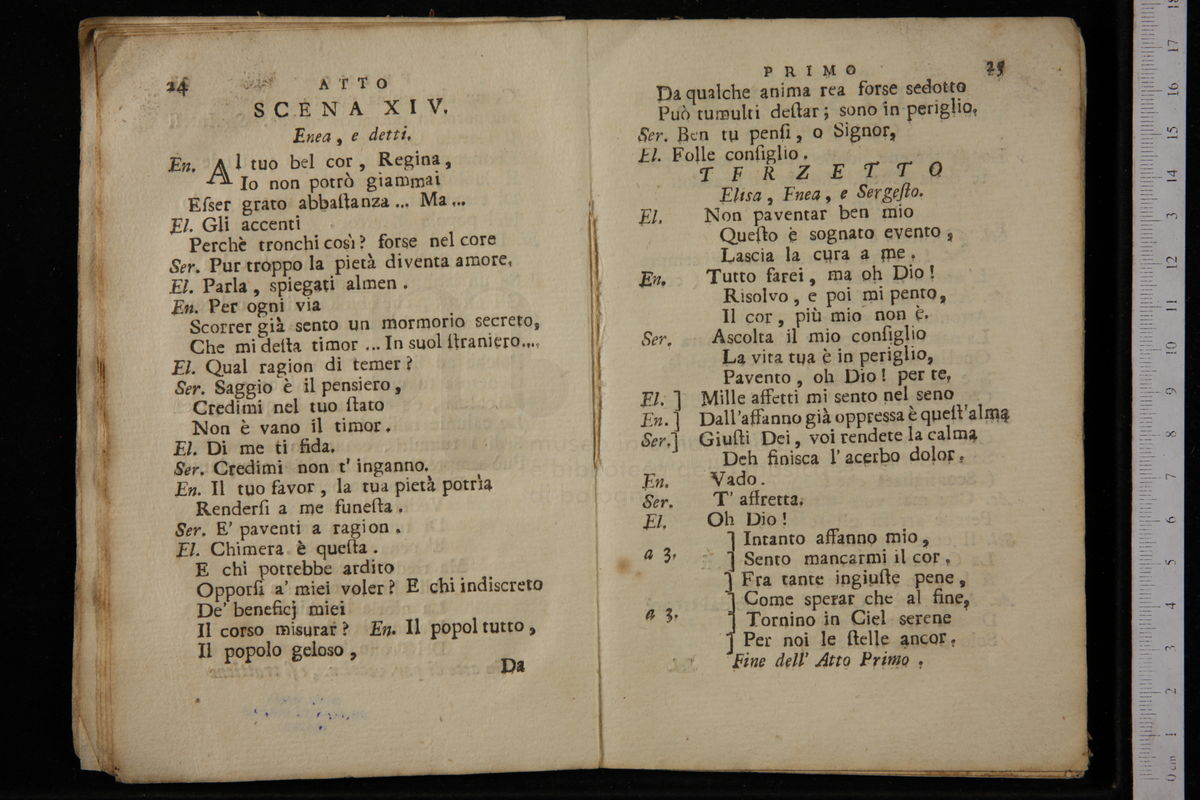 24 ATTO
SCENA XIV.
Enea, e detti.
En. Al tuo bel cor, Regina,
Io non potrò giammai
Eſſer grato abbaſtanza... Ma...
El. Gli accenti
Perchè tronchi così? forse nel core
Ser. Pur troppo la pietà diventa amore.
El. Parla, spiegati almen.
En. Per ogni via
Scorrer già sento un mormorio secreto,
Che mi deſta timor ... In suol ſtraniero....
El. Qual ragion di temer?
Ser. Saggio è il pensiero,
Credimi nel tuo ſtato
Non è vano il timor.
El. Di me ti fida.
Ser. Credimi non t' inganno.
En. Il tuo favor, la tua pietà potria
Renderſi a me funeſta.
Ser. E' paventi a ragion.
El. Chimera è queſta.
E chi potrebbe ardito
Opporſi a' miei voler? E chi indiscreto
De' beneficj miei
Il corso misurar? En. Il popol tutto,
Il popolo geloso,
Da
PRIMO 25
Da qualche anima rea forse sedotto
Può tumulti deſtar; sono in periglio.
Ser. Ben tu penſi, o Signor,
El. Folle conſiglio.
TFRZETTO
Elisa, Enea, e Sergeſto.
El. Non paventar ben mio
Queſto è sognato evento,
Lascia la cura a me.
En. Tutto farei, ma oh Dio!
Risolvo, e poi mi pento,
Il cor, più mio non è.
Ser. Ascolta il mio conſiglio
La vita tua è in periglio,
Pavento, oh Dio! per te,
El. ] Mille affetti mi sento nel seno
En. ] Dall'affanno già oppressa è queſt'alma
Ser. ] Giuſti Dei, voi rendete la calma
Deh finisca l'acerbo dolor.
En. Vado.
Ser. T' affretta.
El. Oh Dio!
] Intanto affanno mio,
a 3. ] Sento mancarmi il cor.
] Fra tante ingiuſte pene,
] Come sperar che al fine,
a 3. ] Tornino in Ciel serene
] Per noi le ſtelle ancor.
Fine dell' Atto Primo.